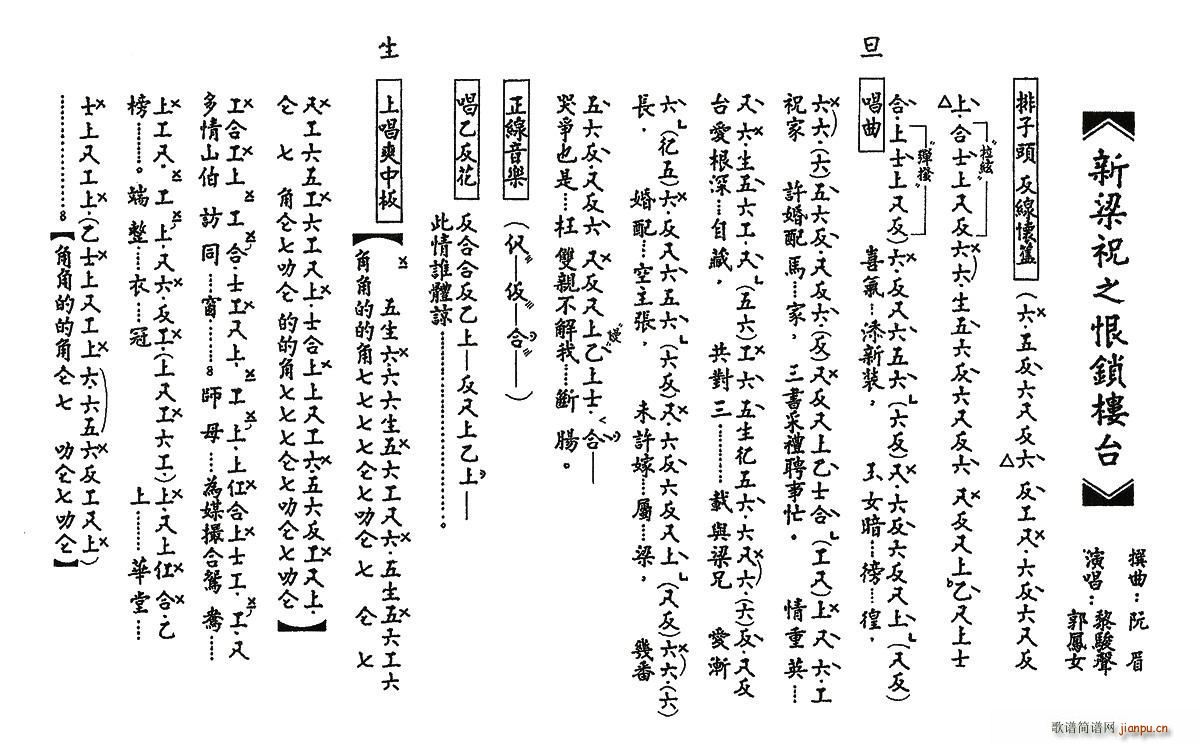 新梁祝之恨鎖樓台
撰曲：阮眉
演唱：黎駿聲
郭鳳女
排子頭 反線懷舊（六．五反六又反六 反工又．六反六又反
上．合士上又反六六．生五六反六又反六 又反又上乙又上士
"拉絃"
合．上士上又反）六．反又六五六（六反）又．六反六反又上（又反）
"彈撥"
旦
唱曲
喜氣…添新裝， 玉女暗…徬…徨，
六六（六）五六反．又反六（反）又反又上乙士合（工又）上又六．工
祝家 許婚配馬…家， 三書采禮聘事忙。 情重英…
又．六．生五六工．又（五六）工．六 五生仜五六．六又六．（六）反．又反
台愛根深…自藏， 共對三……載與梁兄 愛漸
六．（仜五）六．反又六五六（六反）又．六反六反又上（又反）六六．（六）
長， 婚配…空主張， 未許嫁…屬…梁， 幾番
五六反又反六 又反又上乙上士．合——
哭爭也是…枉 雙親不解我…斷腸。
正線音樂（仅——仮——合——）
唱乙反花 反合合反乙上——反又上乙上——
此情誰體諒……………。
生
上唱爽中板【 五生六．六六生五六工又六．五生五六工六
角角的的角七七七七仑七叻仑 七 仑 七
又工六五工六工又上士合上上又工六．五六反工又上．
仑 七 角仑七叻仑的的角七七七仑七叻仑七叻仑】
工合工上 工合．士工又上． 工上．上仜合上士工．工．又
多情山伯 訪同…窗……師母…為媒撮合鴛鴦……
上工又．工上．又六．反工．（上又工六工．）上．又上仜合．乙
榜……。端整…衣…冠 上……華堂…
士上又工上．（乙士上又工上六．六五六反工又上）
…………【角角的的角仑七 叻仑七叻仑】
歌谱简谱网 jianpu.cn